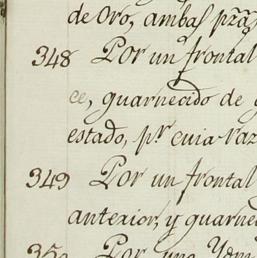 de Oro, ambas prã
348 Por un frontal
ce, guarnecido de
estado, pr. cuia raz
349 Por un frontal
anterior, y guarne
350 Por una